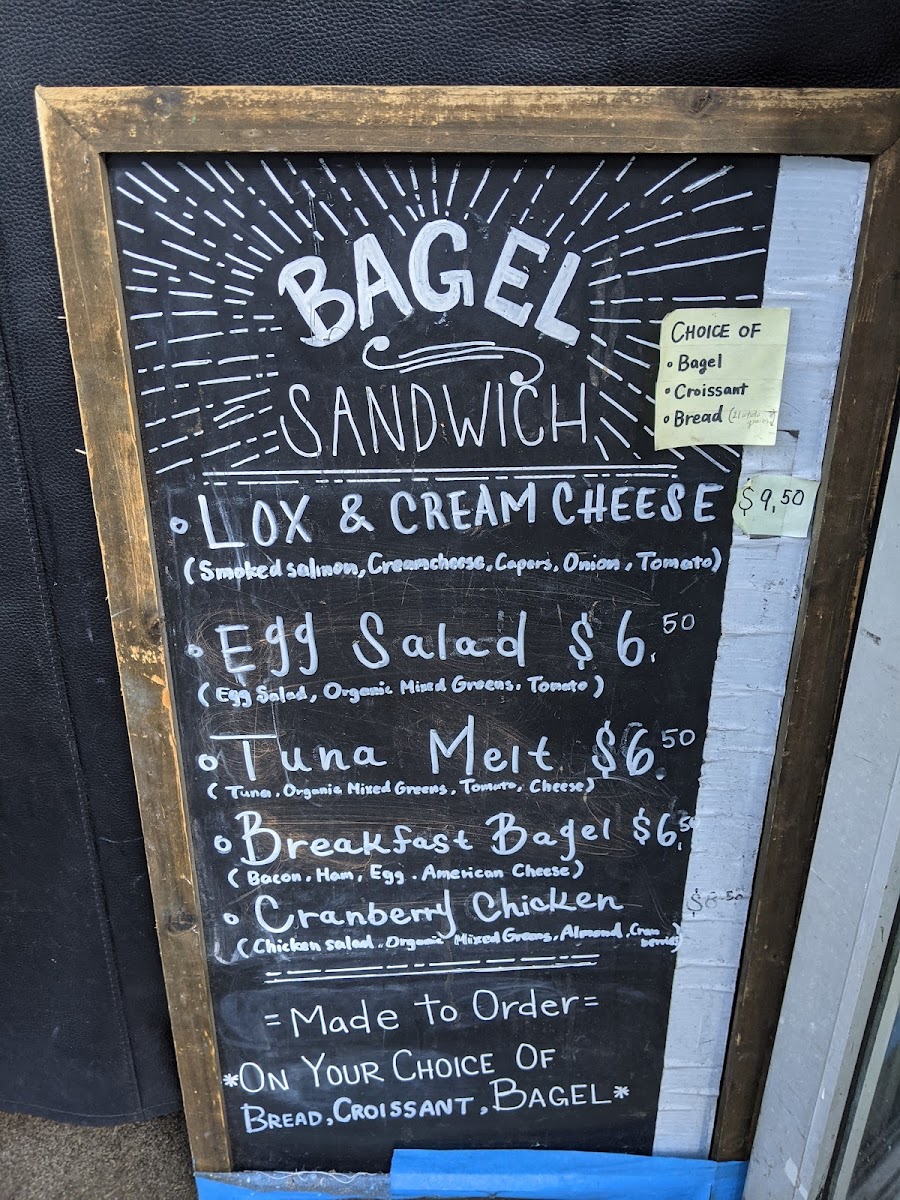 BAGEL
SANDWICH
CHOICE OF
Bagel
Croissant
Bread
LOX & CREAM CHEESE $9,50
(Smoked salmon, Creamcheese, Capers, Onion, Tomato)
Egg Salad $6.50
(Egg Salad, Organic Mixed Greens, Tomato)
Tuna Melt $6.50
(Tuna, Organic Mixed Greens, Tomato, Cheese)
Breakfast Bagel $6.50
(Bacon, Ham, Egg. American Cheese)
Cranberry Chicken
(Chicken salad. Organic Mixed Greens, Almond, Cranberries)
=Made to Order=
*ON YOUR CHOICE OF
BREAD, CROISSANT, BAGEL*